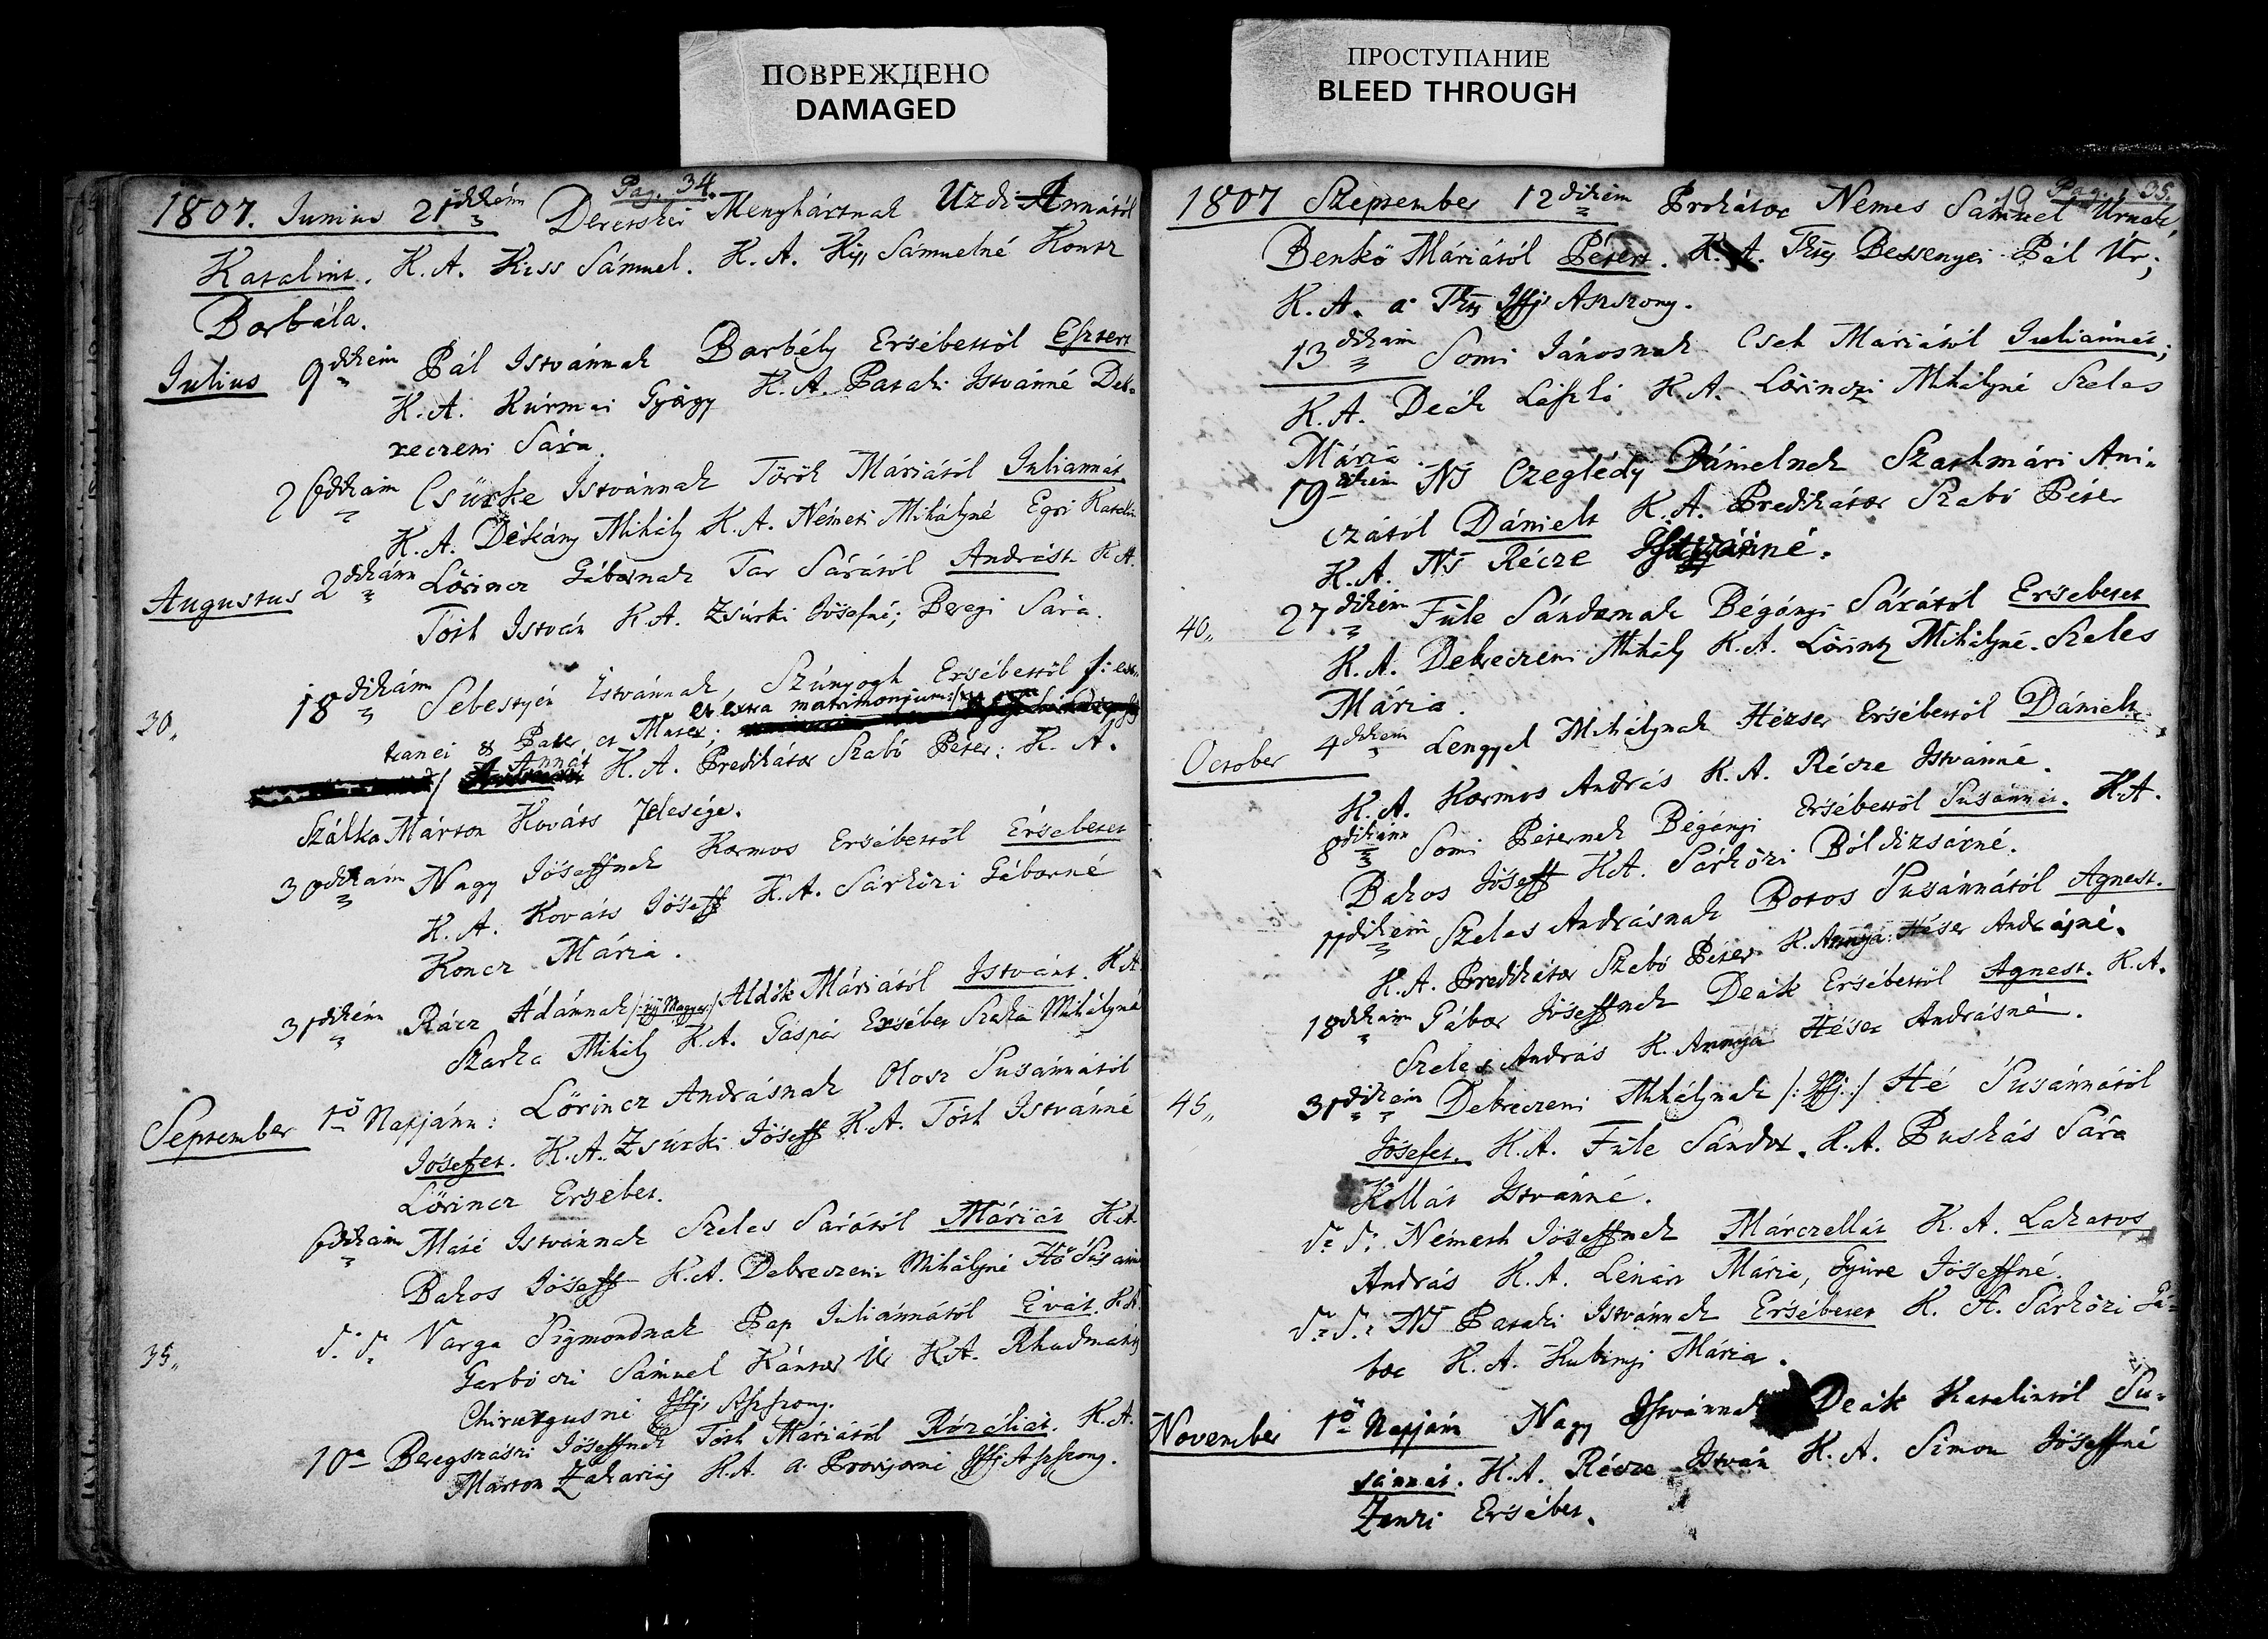 ПОВРЕЖДЕНО
DAMAGED
ПРОСТУПАНИЕ
BLEED THROUGH
Pag. 34.
1807. Iunius 21dikén Deretskei Menyhártnak Uzdi Annától
Katalint. K.A. Kiss Sámuel. K.A. Kiss Sámuelné Kontz
Borbála.
Iulius 9dikén Pál Istvánnak Barbély Ersébettöl Esztert
K.A. Kúrmai György K.A. Pataki Istvánné Deb-
reczeni Sára.
26dikán Csürke Istvánnak Török Máriától Iuliannát
K.A. Dékány Mihály K.A. Németi Mihályné Egri Katalin
Augustus 2dikánn Lörincz Gábornak Tar Sárától Andrást K.A.
Tóth István K.A. Zsúrki Jósefné; Beregi Sára.
30,, 18dikán Sebestyén Istvánnak, Szúnyogh Ersébettöl
et extra matrimonium
tranei Pater et Mater;
Annát K.A. Predikátor Szabó Péter: K.A.
Szálka Márton Kováts felesége.
30dikán Nagy Jóseffnek Kormos Ersébettöl Ersébetet
K.A. Kováts Jóseff K.A. Sárközi Gáborné
Koncz Mária.
31dikén Rácz Ádámnak /:új Magyar:/ Áldók Máriától Istvánt. K.A.
Szarka Mihály K.A. Gáspár Ersébet Szarka Mihályné
September 1ö Napjánn: Lörincz Andrásnak Olosz Susánnától
Jósefet. K.A. Zsúrki Jóseff K.A. Tóth Istvánné
Lörincz Ersébet.
6dikán Máté Istvánnak Szeles Sárától Máriát K.A.
Bakos Jóseff K.A. Debreczeni Mihályné Hé Susánna
35,, d. d. Varga Sigmondnak Pap Juliánnától Évát. K.A.
Garbóczi Sámuel Kántor Úr K.A.
Chirurgusné Iffjú Aszszony.
10a Beregszászi Jóseffnek Tóth Máriától Rózáliát. K.A.
Márton Zakariás K.A. a Provisorné Iffj Aszszony.
19 Pag. 35.
1807 Szeptember 12dikén Prokátor Nemes Sámuel Úrnak,
Benkö Máriától Pétert. K.A. Ttes Bessenyei Pál Úr;
K.A. a Ttes Iffjú Aszszony.
13dikán Somi Jánosnak Cseh Máriától Juliánnát;
K.A. Deák László K.A. Lörinczi Mihályné Szeles
Mária.
19dikén NS Czeglédy Dánielnek Szathmári Ani-
czától Dánielt K.A. Predikátor Szabó Péter
K.A. NS Récze Istvánné.
40,, 27dikén Füle Sándornak Bégányi Sárától Ersébetet
K.A. Debreczeni Mihály K.A. Lörintz Mihályné Szeles
Mária.
October 4dikén Lengyel Mihálynak Hézser Ersébettöl Dánielt
K.A. Kormos András K.A. Récze Istvánné.
8dikánn Somi Péternek Bégányi Ersébettöl Susánnát. K.A.
Bakos Jóseff K.A. Sárközi Bóldizsárné.
11dikén Szeles Andrásnak Botos Susánnától Agnest.
K.A. Predikátor Szabó Péter K. Annya: Héser Andrásné.
18dikán Gábor Jóseffnek Deák Ersébettöl Agnest. K.A.
Szeles András K. Annya Héser Andrásné.
45,, 31dikén Debreczeni Mihálynak /:Iffj:/ Hé Susánnától
Jósefet. K.A. Füle Sándor. K.A. Puskás Sára
Kollát Istvánné.
d. d. Németh Jóseffnek Márczellát K.A. Lakatos
András K.A. Lénárt Mária, Gyüre Jóseffné.
d. d. NS Pataki Istvánnak Ersébetet K.A. Sárközi Gá-
bor K.A. Kubinyi Mária.
November 1ö Napján Nagy Istvánnak Deák Katalintól Su-
sánnát. K.A. Récze István K.A. Simon Jóseffné
Ersébet.